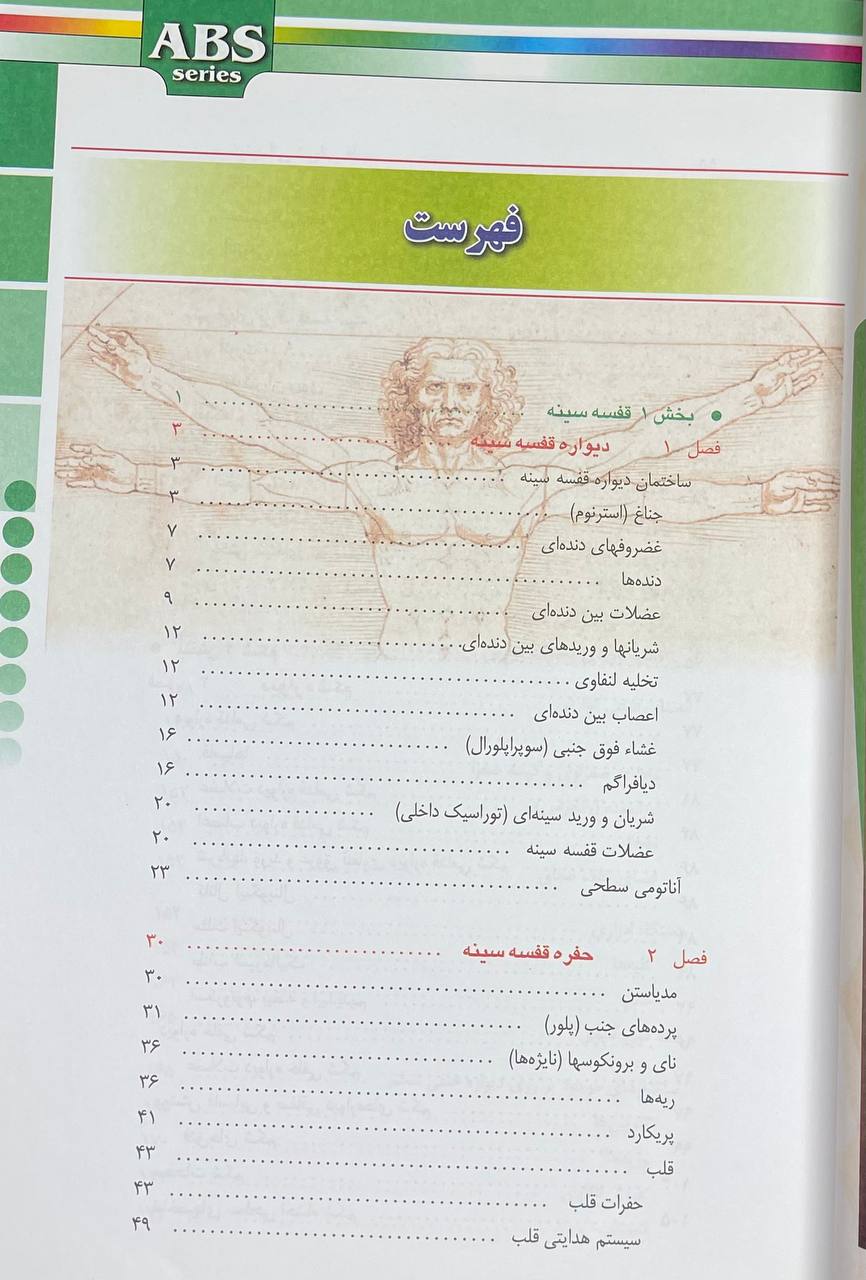 ABS
series
فهرست
● بخش ۱ قفسه سینه ........ ۱
فصل ۱ دیواره قفسه سینه ........ ۳
ساختمان دیواره قفسه سینه ........ ۳
جناغ (استرنوم) ........ ۳
غضروفهای دنده‌ای ........ ۷
دنده‌ها ........ ۷
عضلات بین دنده‌ای ........ ۹
شریانها و وریدهای بین دنده‌ای ........ ۱۲
تخلیه لنفاوی ........ ۱۲
اعصاب بین دنده‌ای ........ ۱۲
غشاء فوق جنبی (سوپراپلورال) ........ ۱۶
دیافراگم ........ ۱۶
شریان و ورید سینه‌ای (توراسیک داخلی) ........ ۲۰
عضلات قفسه سینه ........ ۲۰
آناتومی سطحی ........ ۲۳
فصل ۲ حفره قفسه سینه ........ ۳۰
مدیاستن ........ ۳۰
پرده‌های جنب (پلور) ........ ۳۱
نای و برونکوسها (نایژه‌ها) ........ ۳۶
ریه‌ها ........ ۳۶
پریکارد ........ ۴۱
قلب ........ ۴۳
حفرات قلب ........ ۴۳
سیستم هدایتی قلب ........ ۴۹